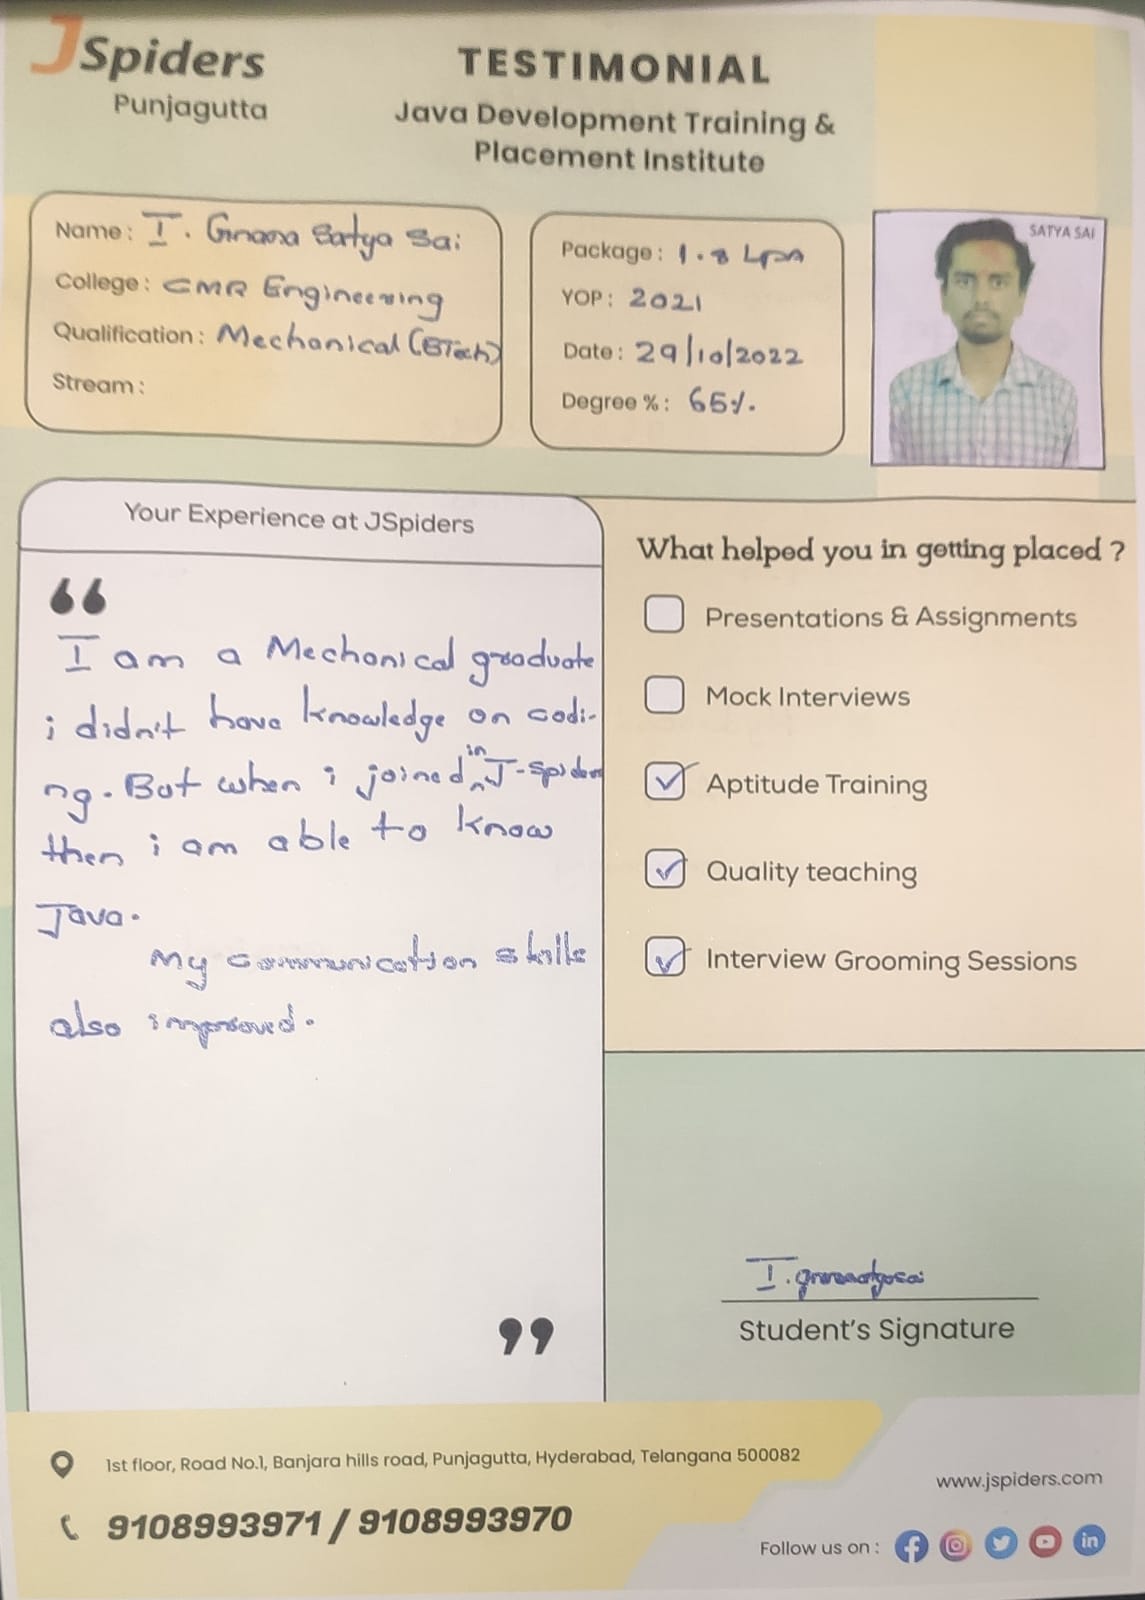 JSpiders
Punjagutta
TESTIMONIAL
Java Development Training &
Placement Institute
Name : I. Gnana Satya Sai
College : CMR Engineering
Qualification : Mechanical (BTech)
Stream :
Package : 1.8 LPA
YOP : 2021
Date : 29/10/2022
Degree % : 65%.
SATYA SAI
Your Experience at JSpiders
“
I am a Mechanical graduate
i didn't have knowledge on codi-
ng. But when i joined in J-Spiders
then i am able to know
Java.
My communication skills
also improved.
”
What helped you in getting placed ?
Presentations & Assignments
Mock Interviews
Aptitude Training
Quality teaching
Interview Grooming Sessions
I. gnanasatyasai
Student's Signature
1st floor, Road No.1, Banjara hills road, Punjagutta, Hyderabad, Telangana 500082
9108993971 / 9108993970
www.jspiders.com
Follow us on :